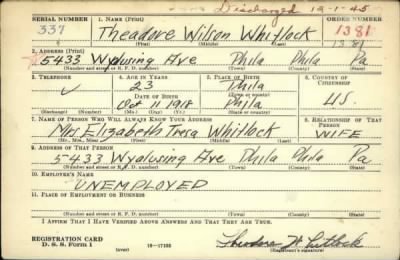 Discharged 12-1-45
SERIAL NUMBER 1. NAME (Print) ORDER NUMBER
337 Theodore Wilson Whitlock 1381
(First) (Middle) (Last) 1381
2. ADDRESS (Print)
5433 Wyalusing Ave Phila Phila Pa
(Number and street or R. F. D. number) (Town) (County) (State)
3. TELEPHONE 4. AGE IN YEARS 5. PLACE OF BIRTH 6. COUNTRY OF CITIZENSHIP
23 Phila
DATE OF BIRTH (Town or county)
Oct 11 1918 Phila U.S.
(Mo.) (Day) (Yr.) (State or country)
7. NAME OF PERSON WHO WILL ALWAYS KNOW YOUR ADDRESS 8. RELATIONSHIP OF THAT PERSON
Mrs Elizabeth Tresa Whitlock WIFE
(Mr., Mrs., Miss) (First) (Middle) (Last)
9. ADDRESS OF THAT PERSON
5433 Wyalusing Ave Phila Phila Pa
(Number and street or R. F. D. number) (Town) (County) (State)
10. EMPLOYER'S NAME
UNEMPLOYED
11. PLACE OF EMPLOYMENT OR BUSINESS
(Number and street or R. F. D. number) (Town) (County) (State)
I AFFIRM THAT I HAVE VERIFIED ABOVE ANSWERS AND THAT THEY ARE TRUE.
REGISTRATION CARD
D. S. S. Form 1 (over) 16-17105 Theodore W Whitlock
(Registrant's signature)